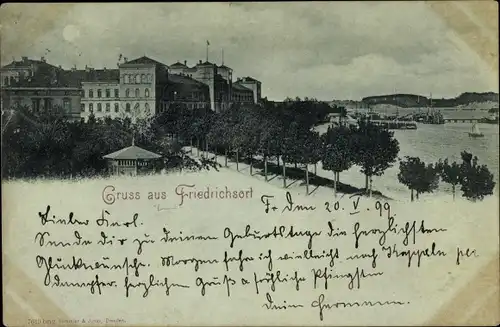 Gruss aus Friedrichsort
F. den 20. V. 99
Lieber Karl.
Sende dir zu deinem Geburtstage die herzlichsten
Glückwünsche. Morgen fahre ich vielleicht nach Kappeln per
Dampfer. herzlichen Gruß u fröhliche Pfingsten
dein Hermann.